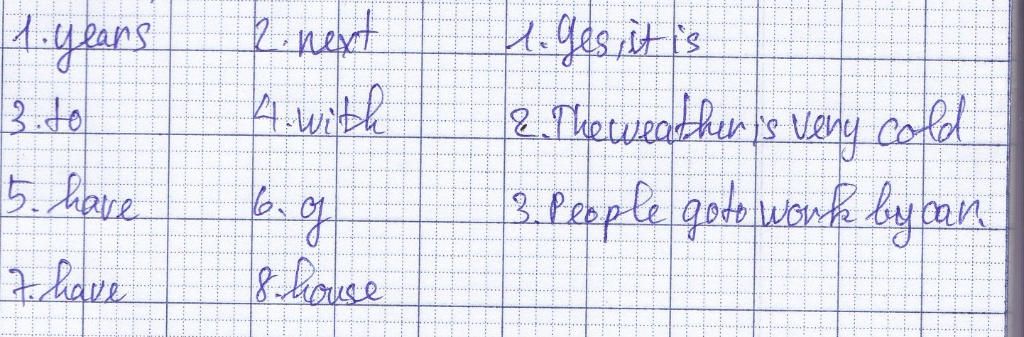 1. years 2. next 1. Yes, it is
3. to 4. with 2. The weather is very cold
5. have 6. of 3. People go to work by car.
7. have 8. house